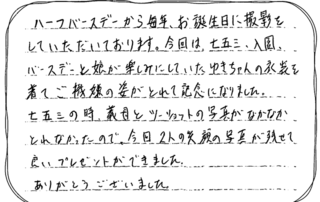 ハーフバースデーから毎年、お誕生日に撮影を
していただいております。今回は、七五三、入園、
バースデーと娘が楽しみにしていたゆきちゃんの衣装を
着てご機嫌の姿がとれて記念になりました。
七五三の時、義母とツーショットの写真がなかなか
とれなかったので、今回2人の笑顔の写真が残せて
良いプレゼントができました。
ありがとうございました。